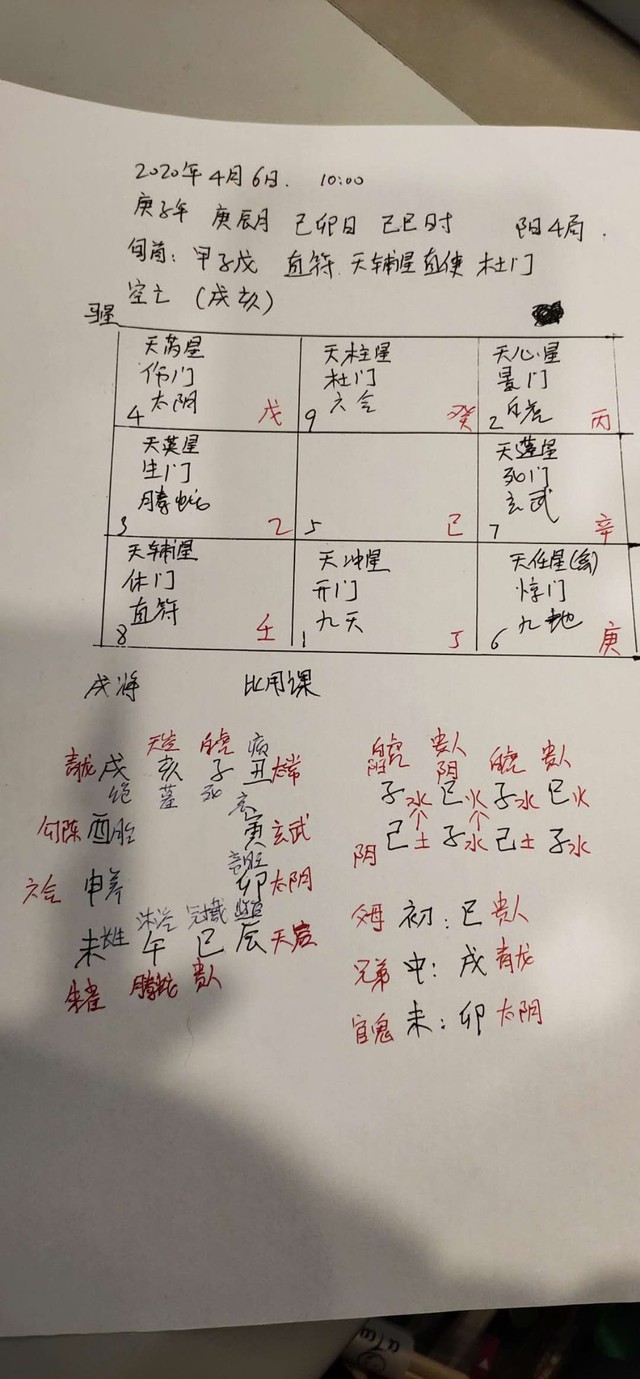 2020年4月6日. 10:00
庚子年 庚辰月 己卯日 己巳时 阳4局.
旬首: 甲子戊 直符 天辅星直使 杜门
空亡 (戌亥)
马星
天芮星 天柱星 天心星
伤门 杜门 景门
4 太阴 戊 9 六合 癸 2 白虎 丙
天英星 天蓬星
生门 死门
3 腾蛇 乙 5 己 7 玄武 辛
天辅星 天冲星 天任星(禽)
休门 开门 惊门
8 直符 壬 1 九天 丁 6 九地 庚
戌将 比用课
青龙 戌 亥 白虎 子 病 丑 太常
绝 墓 死
勾陈 酉胎 寅 玄武
六合 申养 卯 太阴
沐浴
未长生 午 巳 辰 天空
朱雀 腾蛇 贵人
白虎 贵人 白虎 贵人
阳 阴
子水 巳火 子水 巳火
阴 己土 子水 己土 子水
父母 初: 巳 贵人
兄弟 中: 戌 青龙
官鬼 末: 卯 太阴